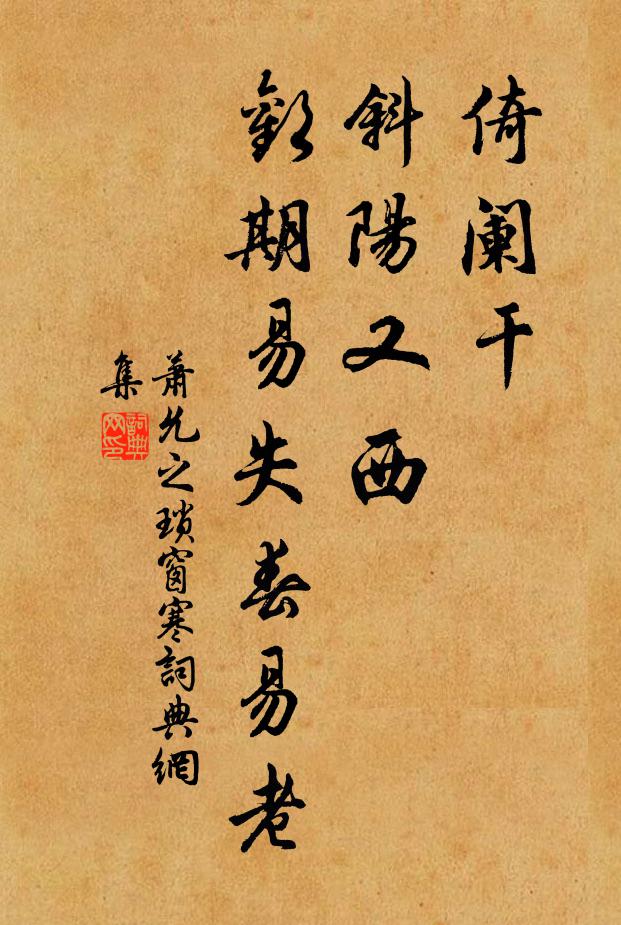 倚闌干
斜陽又西
歡期易失春易老
蕭允之瑣窗寒詞典網
集
詞典
网印